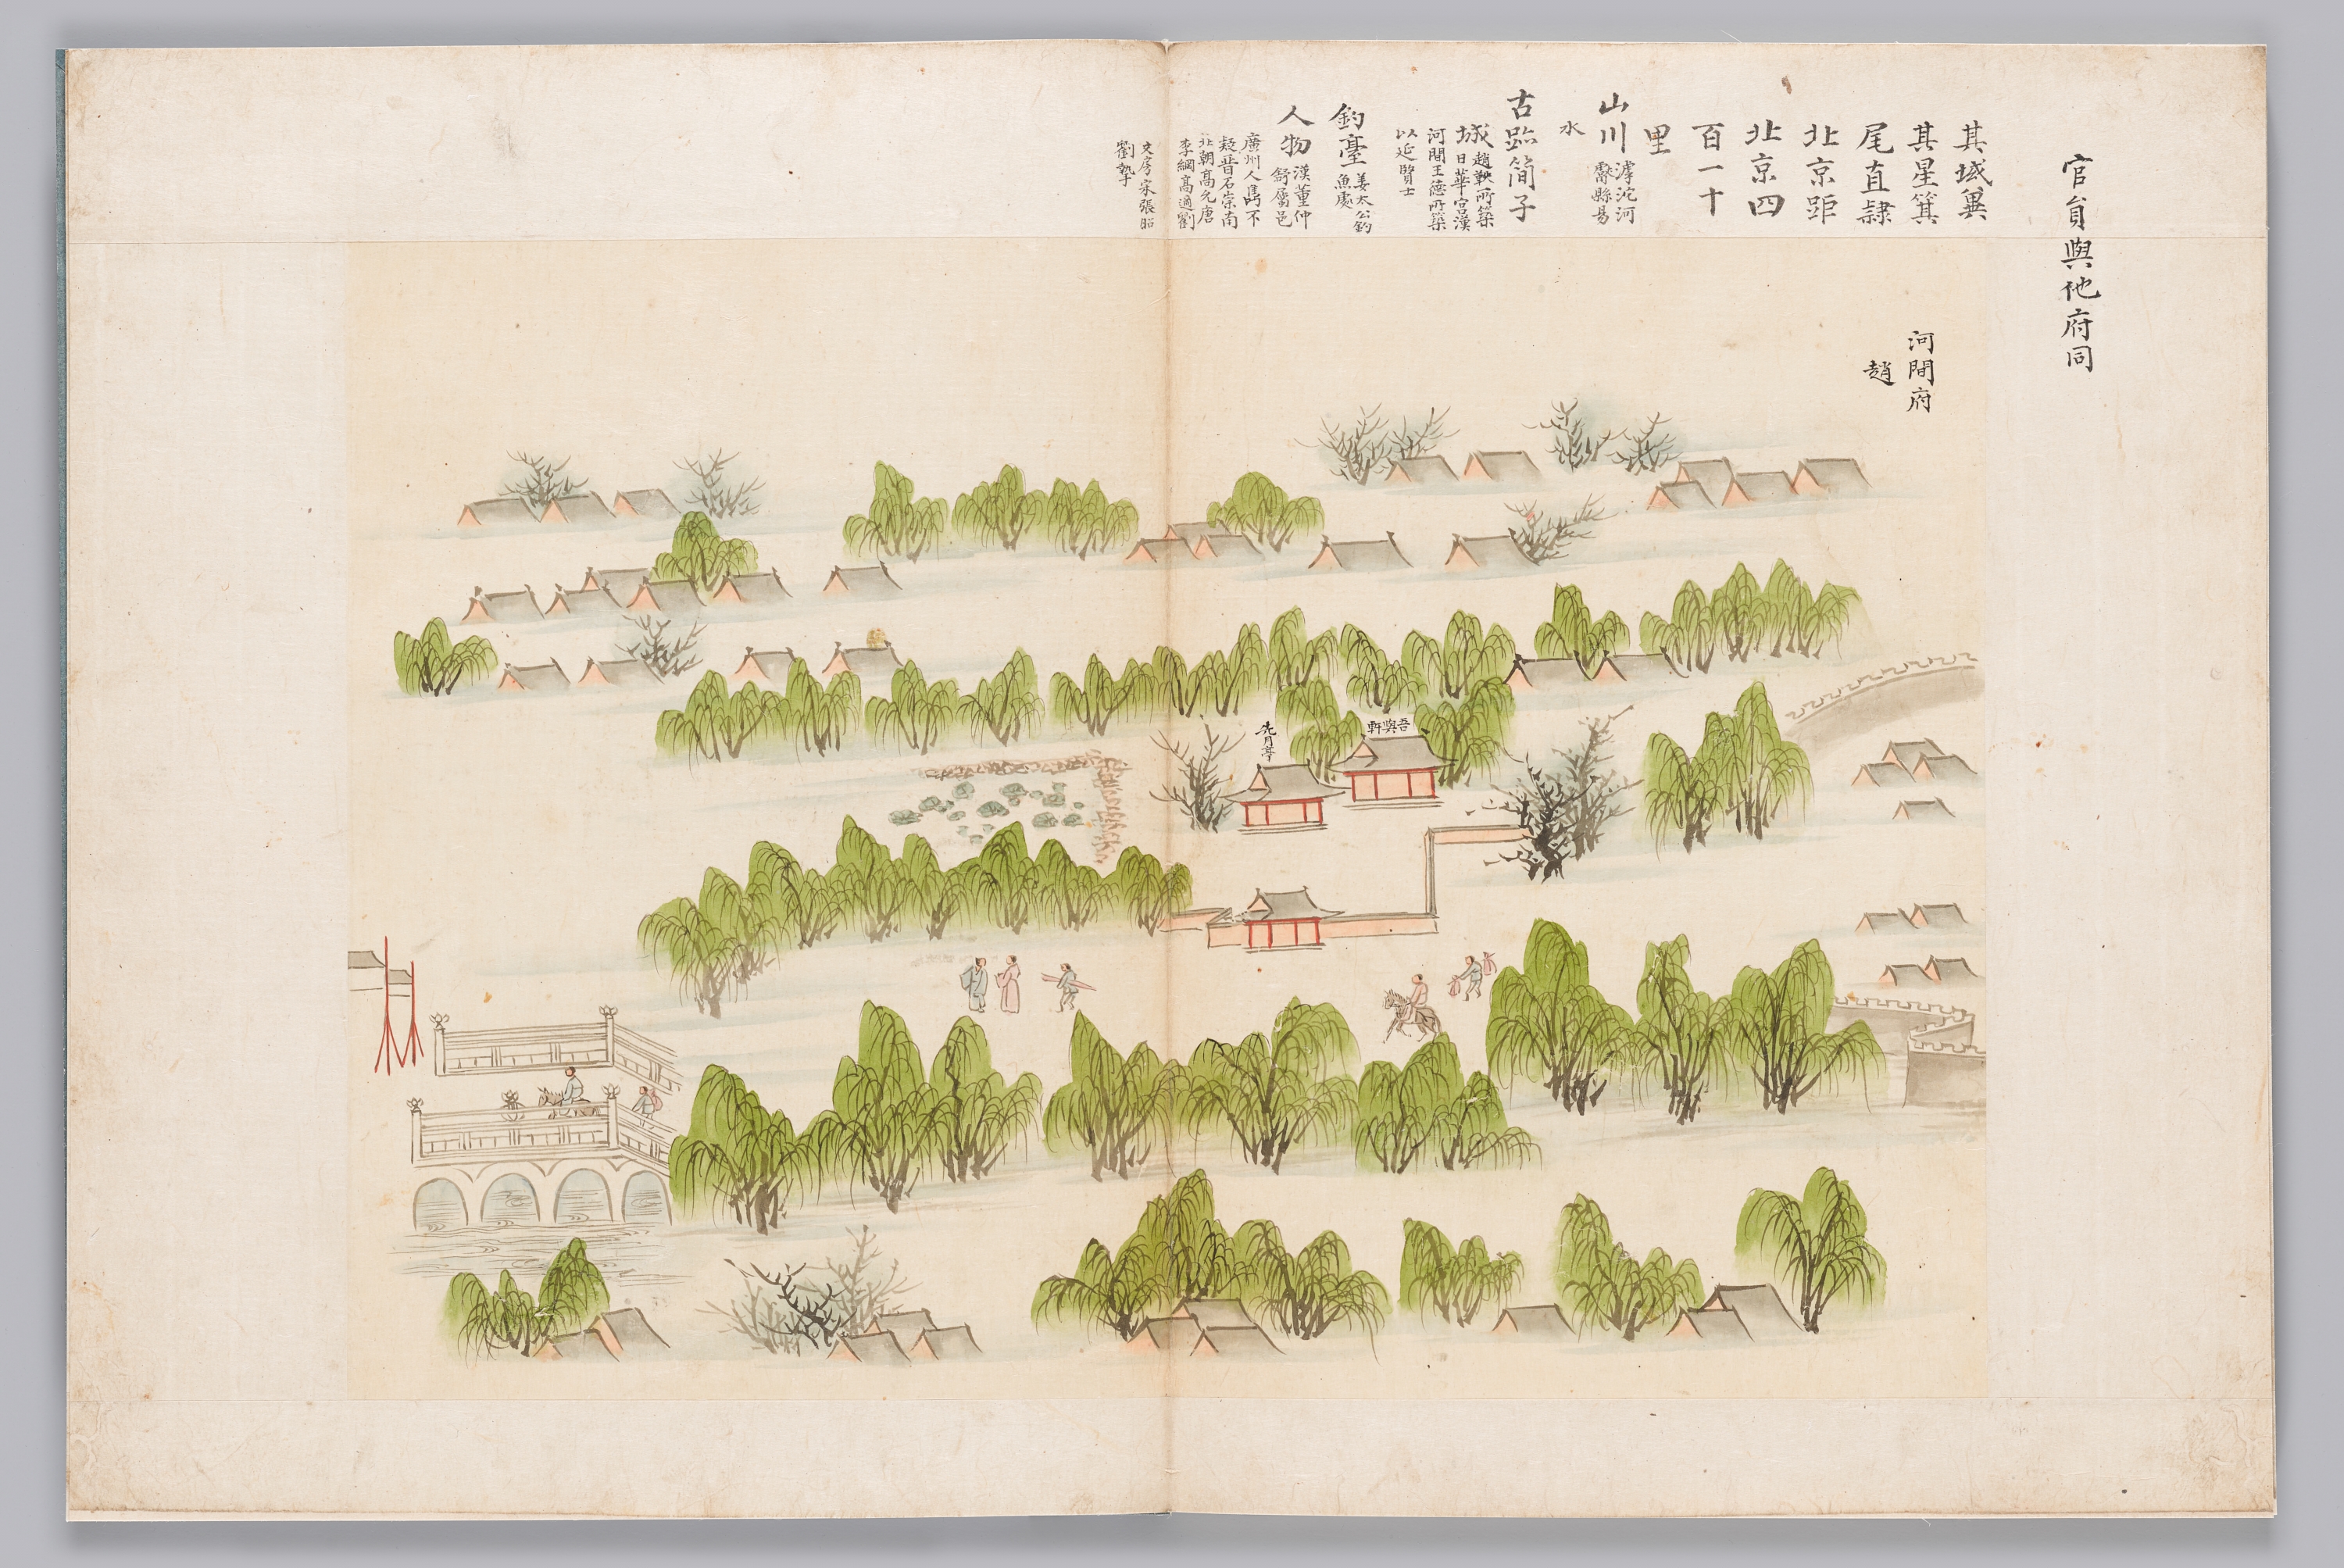 官員與他府同
其域冀
其星箕
尾直隷
北京距
北京四
百一十
里
山川滹沱河
鬱縣易
水
古跡簡子
城趙鞅所築
日華宮漢
河間王德所築
以延賢士
釣臺姜太公釣
魚處
人物漢董仲
舒屬邑
廣州人雋不
疑晋石崇南
北朝高允唐
李綱高適劉
文房宋張昭
劉摯
河間府
趙
吾與軒
先月亭